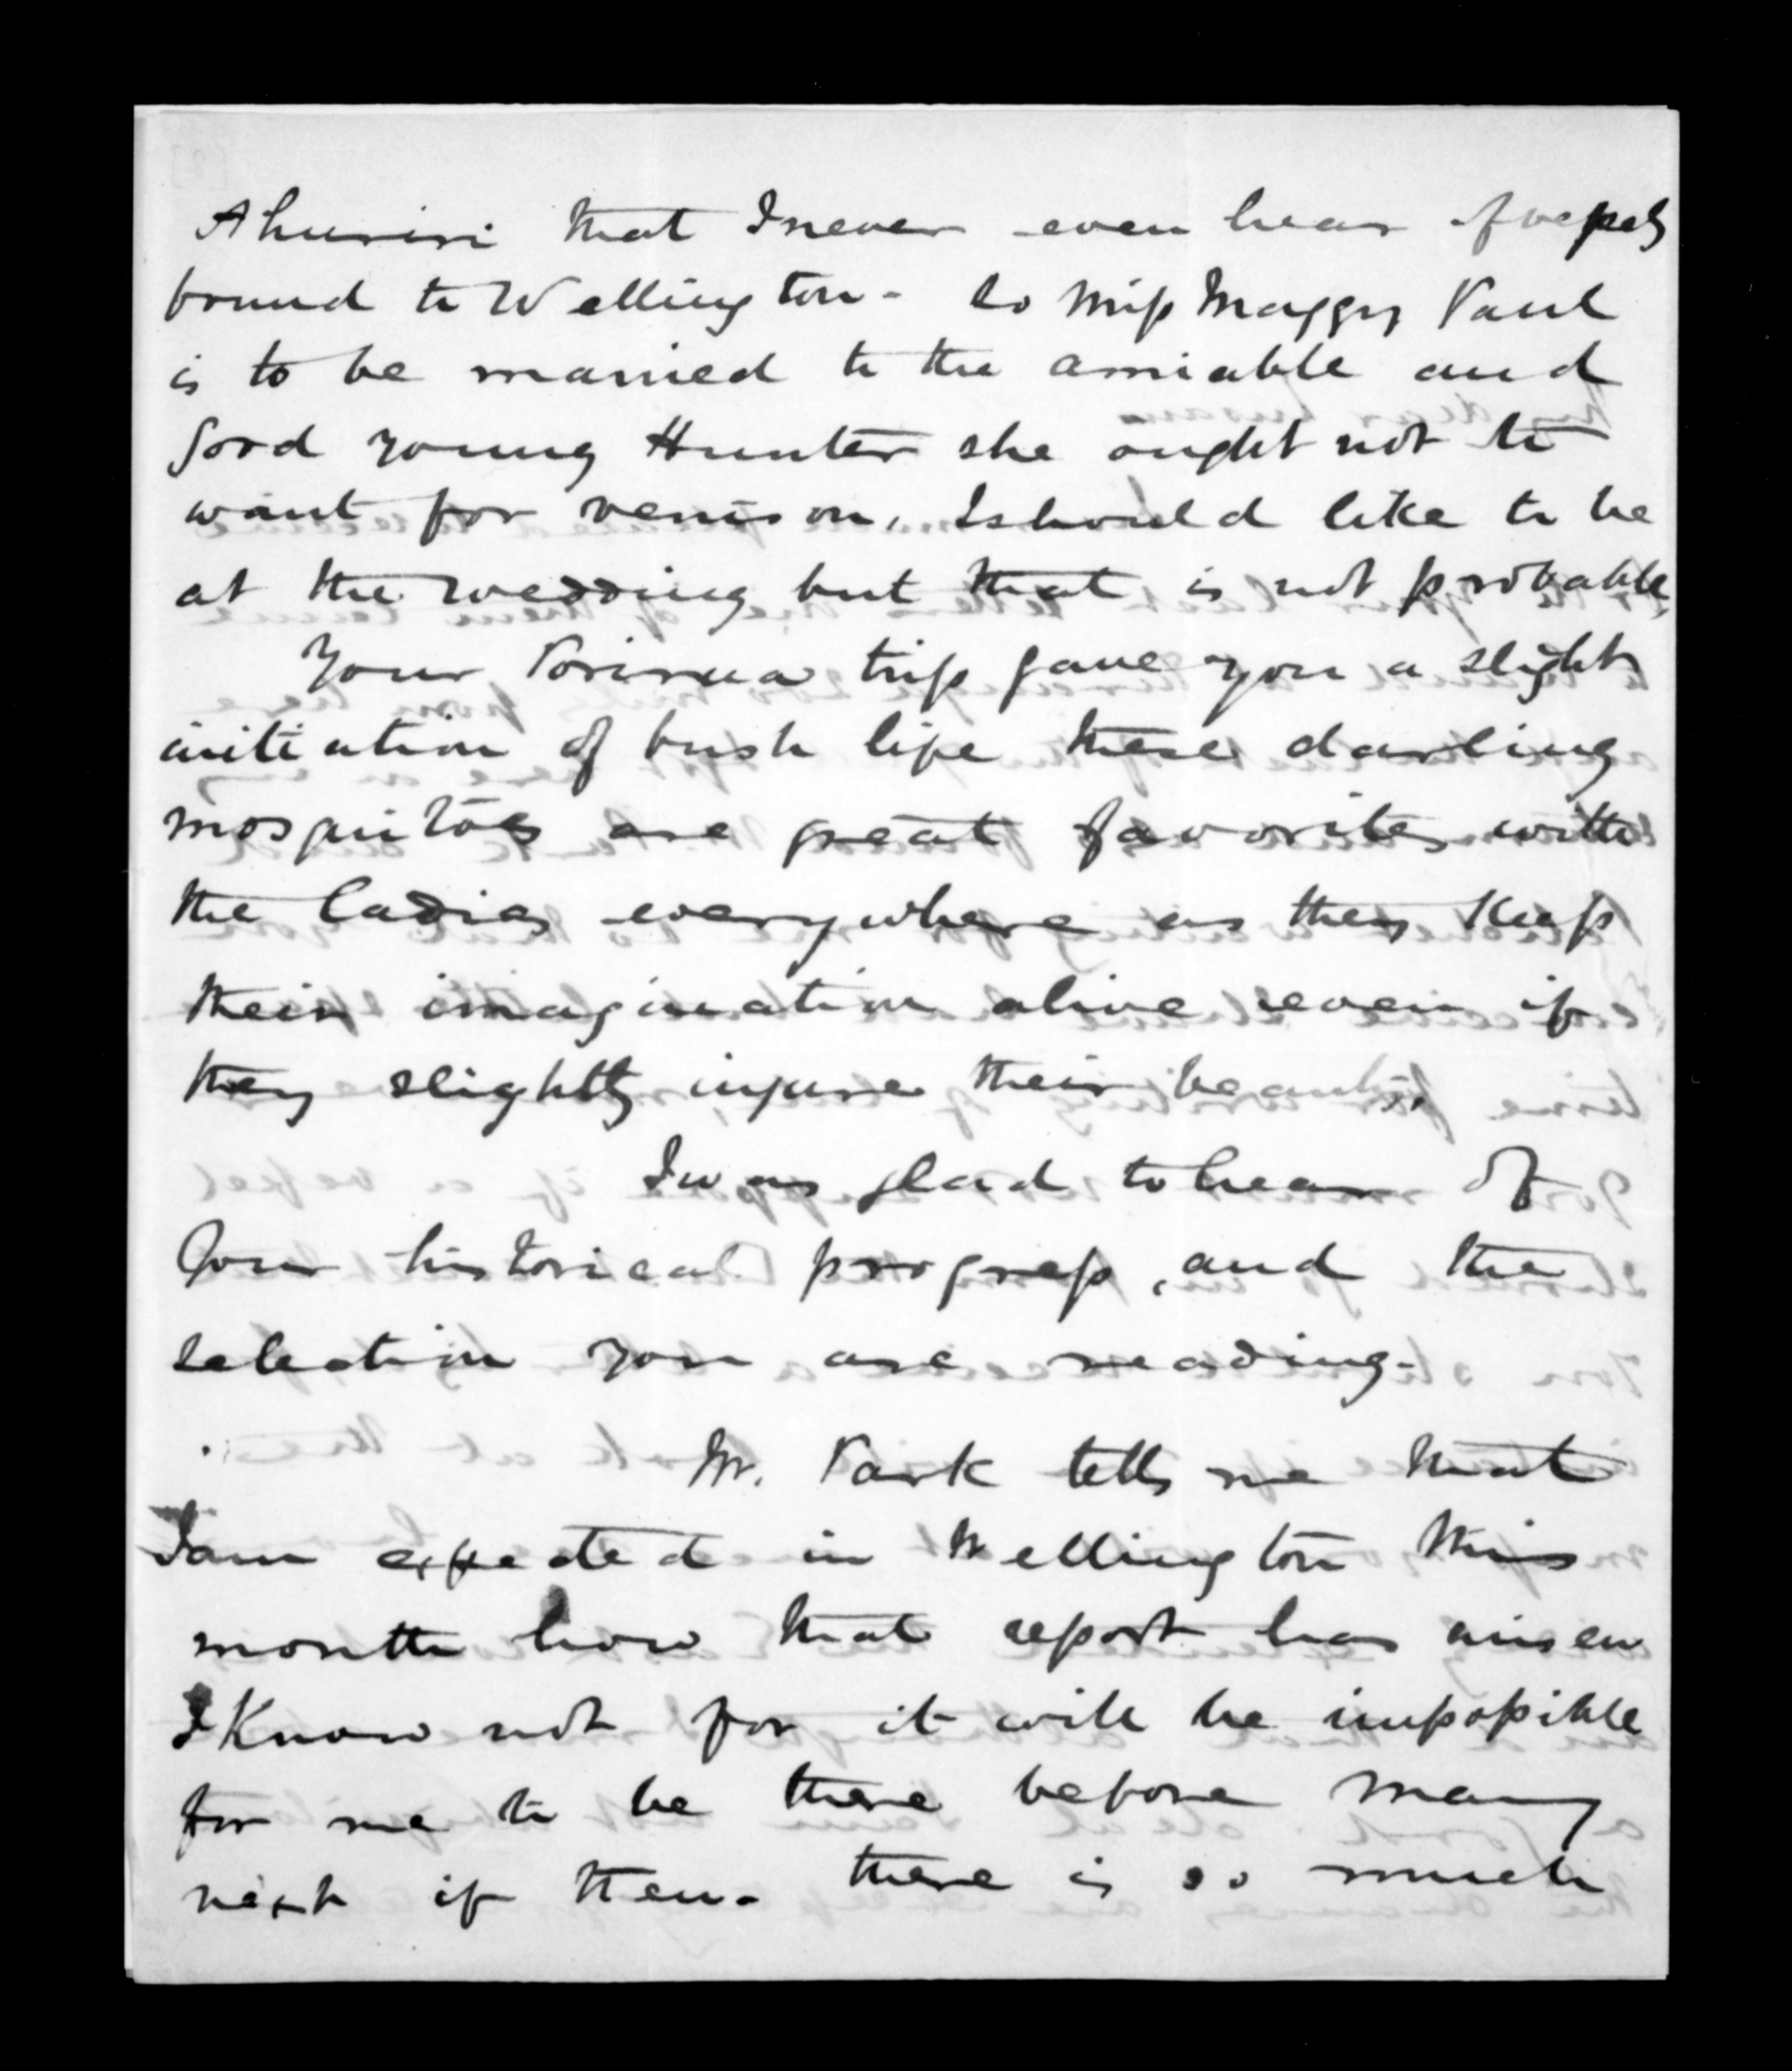 Ahuriri that I never even hear of vessels
bound to Wellington - So Miss Maggy Paul
is to be married to the amiable and
good young Hunter she ought not to
want for venison, I should like to be
at the wedding but that is not probable,
Your Porirua trip gave you a slight
initiation of bush life these darling
mosquitoes are great favorites with
the ladies everywhere as they keep
their imagination alive even if
they slightly injure their beauty,
I was glad to hear of
your historical progress, and the
selection you are reading -
Mr. Park tells me that
I am expected in Wellington this
month how that report has arisen
I Know not for it will be impossible
for me to be there before many
next if then - there is so much